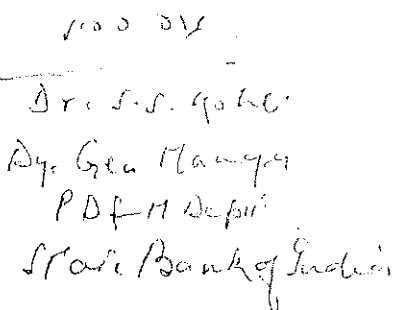 Dr. S.S. 
Dy. Gen Manager
PD & M Deptt
State Bank of India